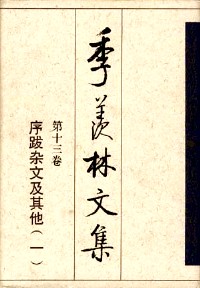 季羡林文集
第十三卷
序跋杂文及其他(一)